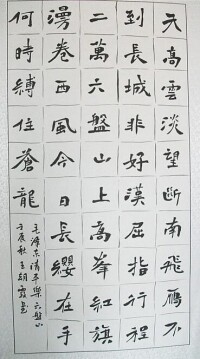 天高雲淡望斷南飛雁不
到長城非好漢屈指行程
二萬六盤山上高峯紅旗
漫卷西風今日長纓在手
何時縛住蒼龍
毛澤東清平樂六盤山
壬辰秋